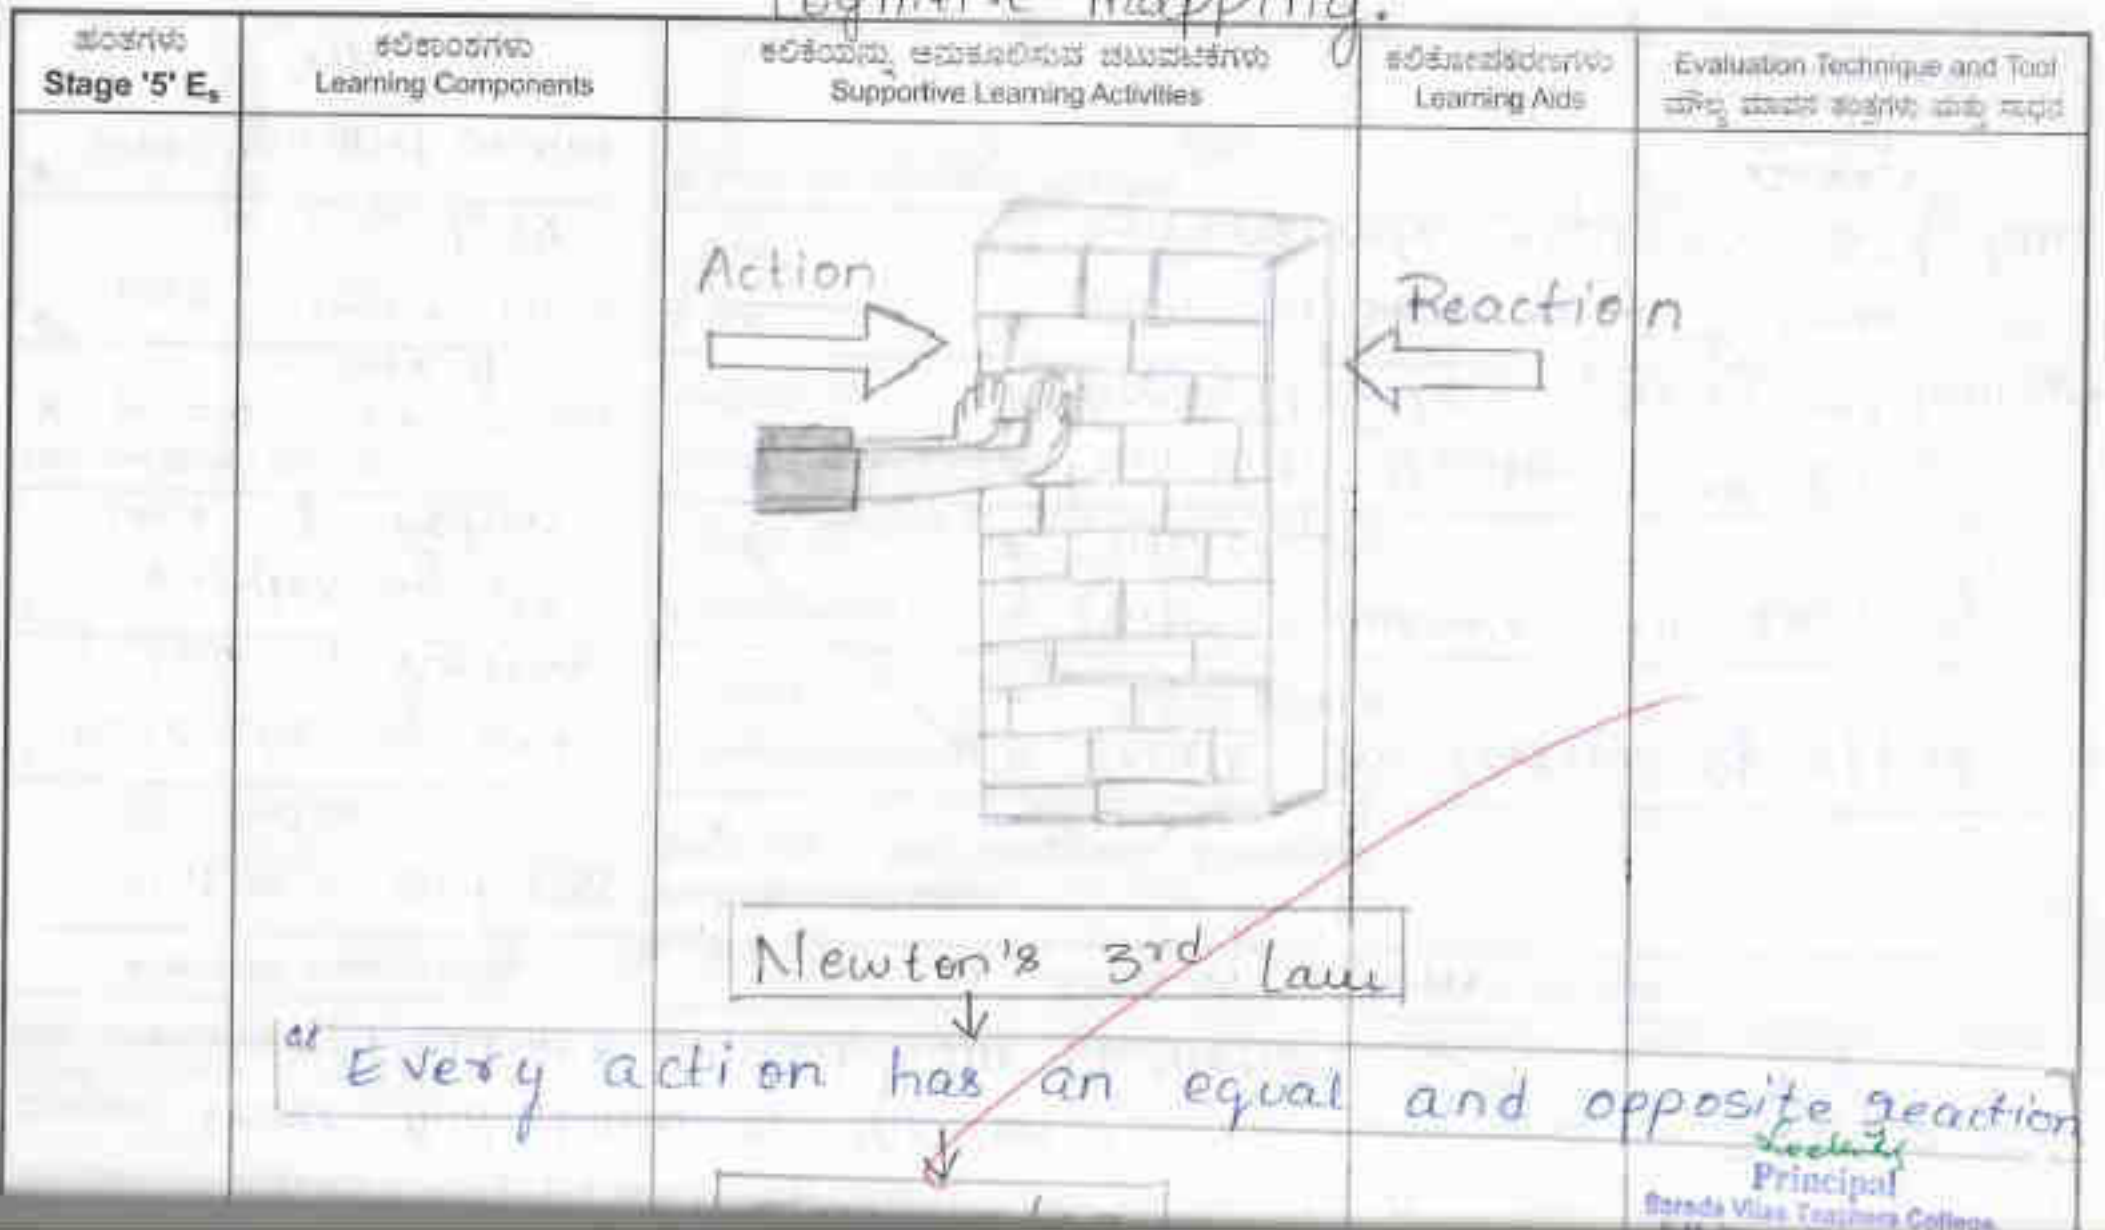 Cognitive Mapping.
ಹಂತಗಳು
Stage '5' Es
ಕಲಿಕಾಂಶಗಳು
Learning Components
ಕಲಿಕೆಯನ್ನು ಅನುಕೂಲಿಸುವ ಚಟುವಟಿಕೆಗಳು
Supportive Learning Activities
ಕಲಿಕೋಪಕರಣಗಳು
Learning Aids
Evaluation Technique and Tool
ಮೌಲ್ಯ ಮಾಪನ ತಂತ್ರಗಳು ಮತ್ತು ಸಾಧನ
Action
Reaction
Newton's 3rd Law
" Every action has an equal and opposite reaction
Principal
Sarada Vilas Teachers College